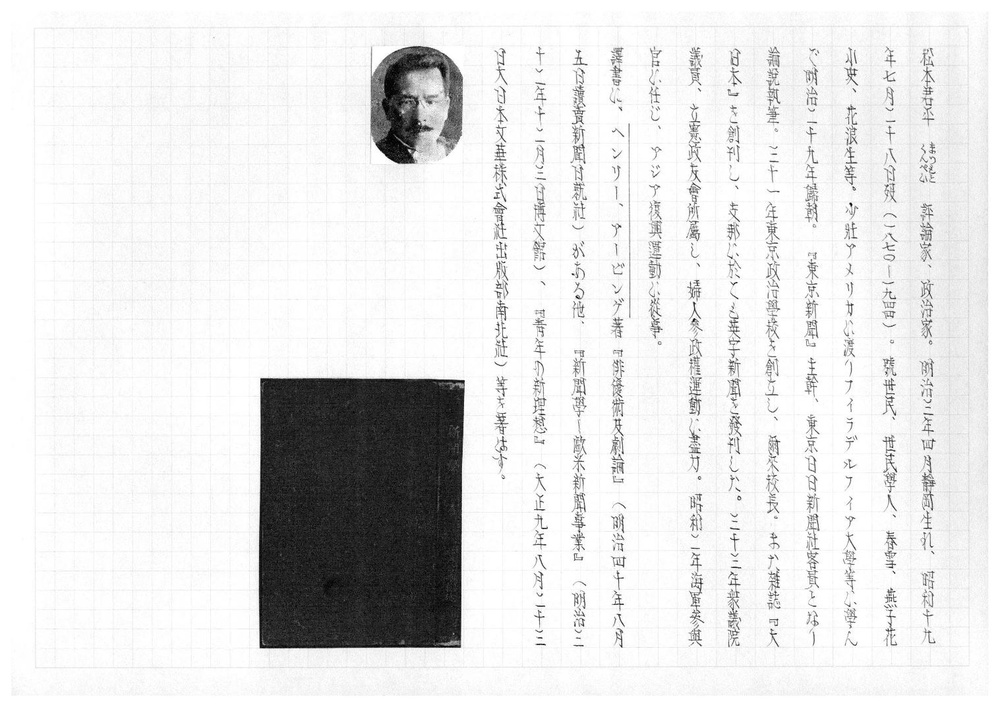 松本君平 まつもと くんぺい 評論家、政治家。明治三年四月靜岡生れ、昭和十九
年七月二十八日歿（一八七〇―一九四四）。號世民、世民學人、春雪、燕子花
小史、花浪生等。少壯アメリカに渡りフィラデルフィア大學等に學ん
で明治二十九年歸朝。『東京新聞』主幹、東京日日新聞社客員となり
論説執筆。三十一年東京政治學校を創立し、爾來校長。また雜誌『大
日本』を創刊し、支那に於ても英字新聞を發刊した。三十三年衆議院
議員、立憲政友會所屬し、婦人參政權運動に盡力。昭和二年海軍參與
官に任じ、アジア復興運動に從事。
譯書に、ヘンリー、アービング著『俳優術及劇論』（明治四十年八月
五日讀賣新聞日就社）がある他、『新聞學―歐米新聞事業』（明治三
十二年十二月三日博文館）、『青年の新理想』（大正九年八月二十三
日大日本文華株式會社出版部南北社）等を著はす。
新聞學